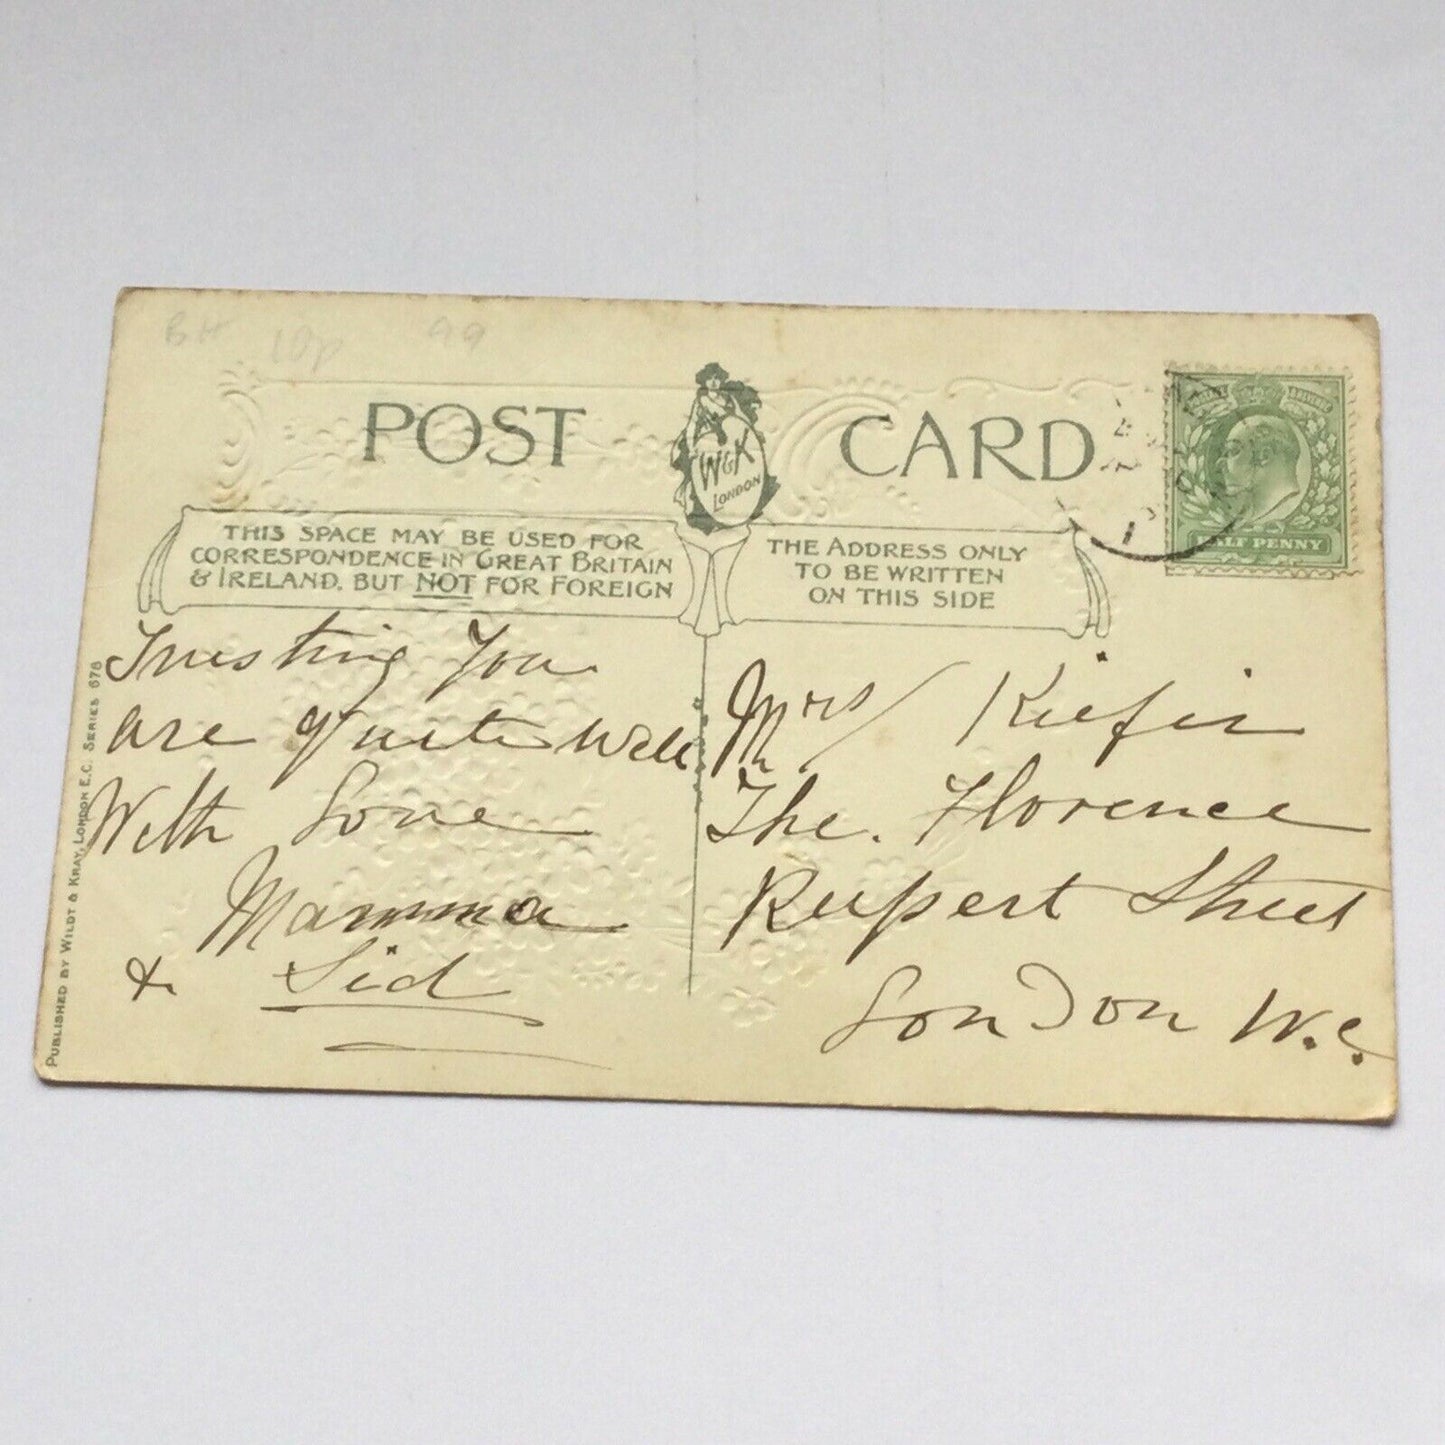 BH 10p 99
POST CARD
W&K
LONDON
THIS SPACE MAY BE USED FOR
CORRESPONDENCE IN GREAT BRITAIN
& IRELAND, BUT NOT FOR FOREIGN
THE ADDRESS ONLY
TO BE WRITTEN
ON THIS SIDE
HALF PENNY
Trusting You
are Quite Well
With Love
Mamma
& Sid
Mrs Kiefer
The. Florence
Rupert Street
London W.C.
PUBLISHED BY WILDT & KRAY, LONDON E.C. SERIES 678